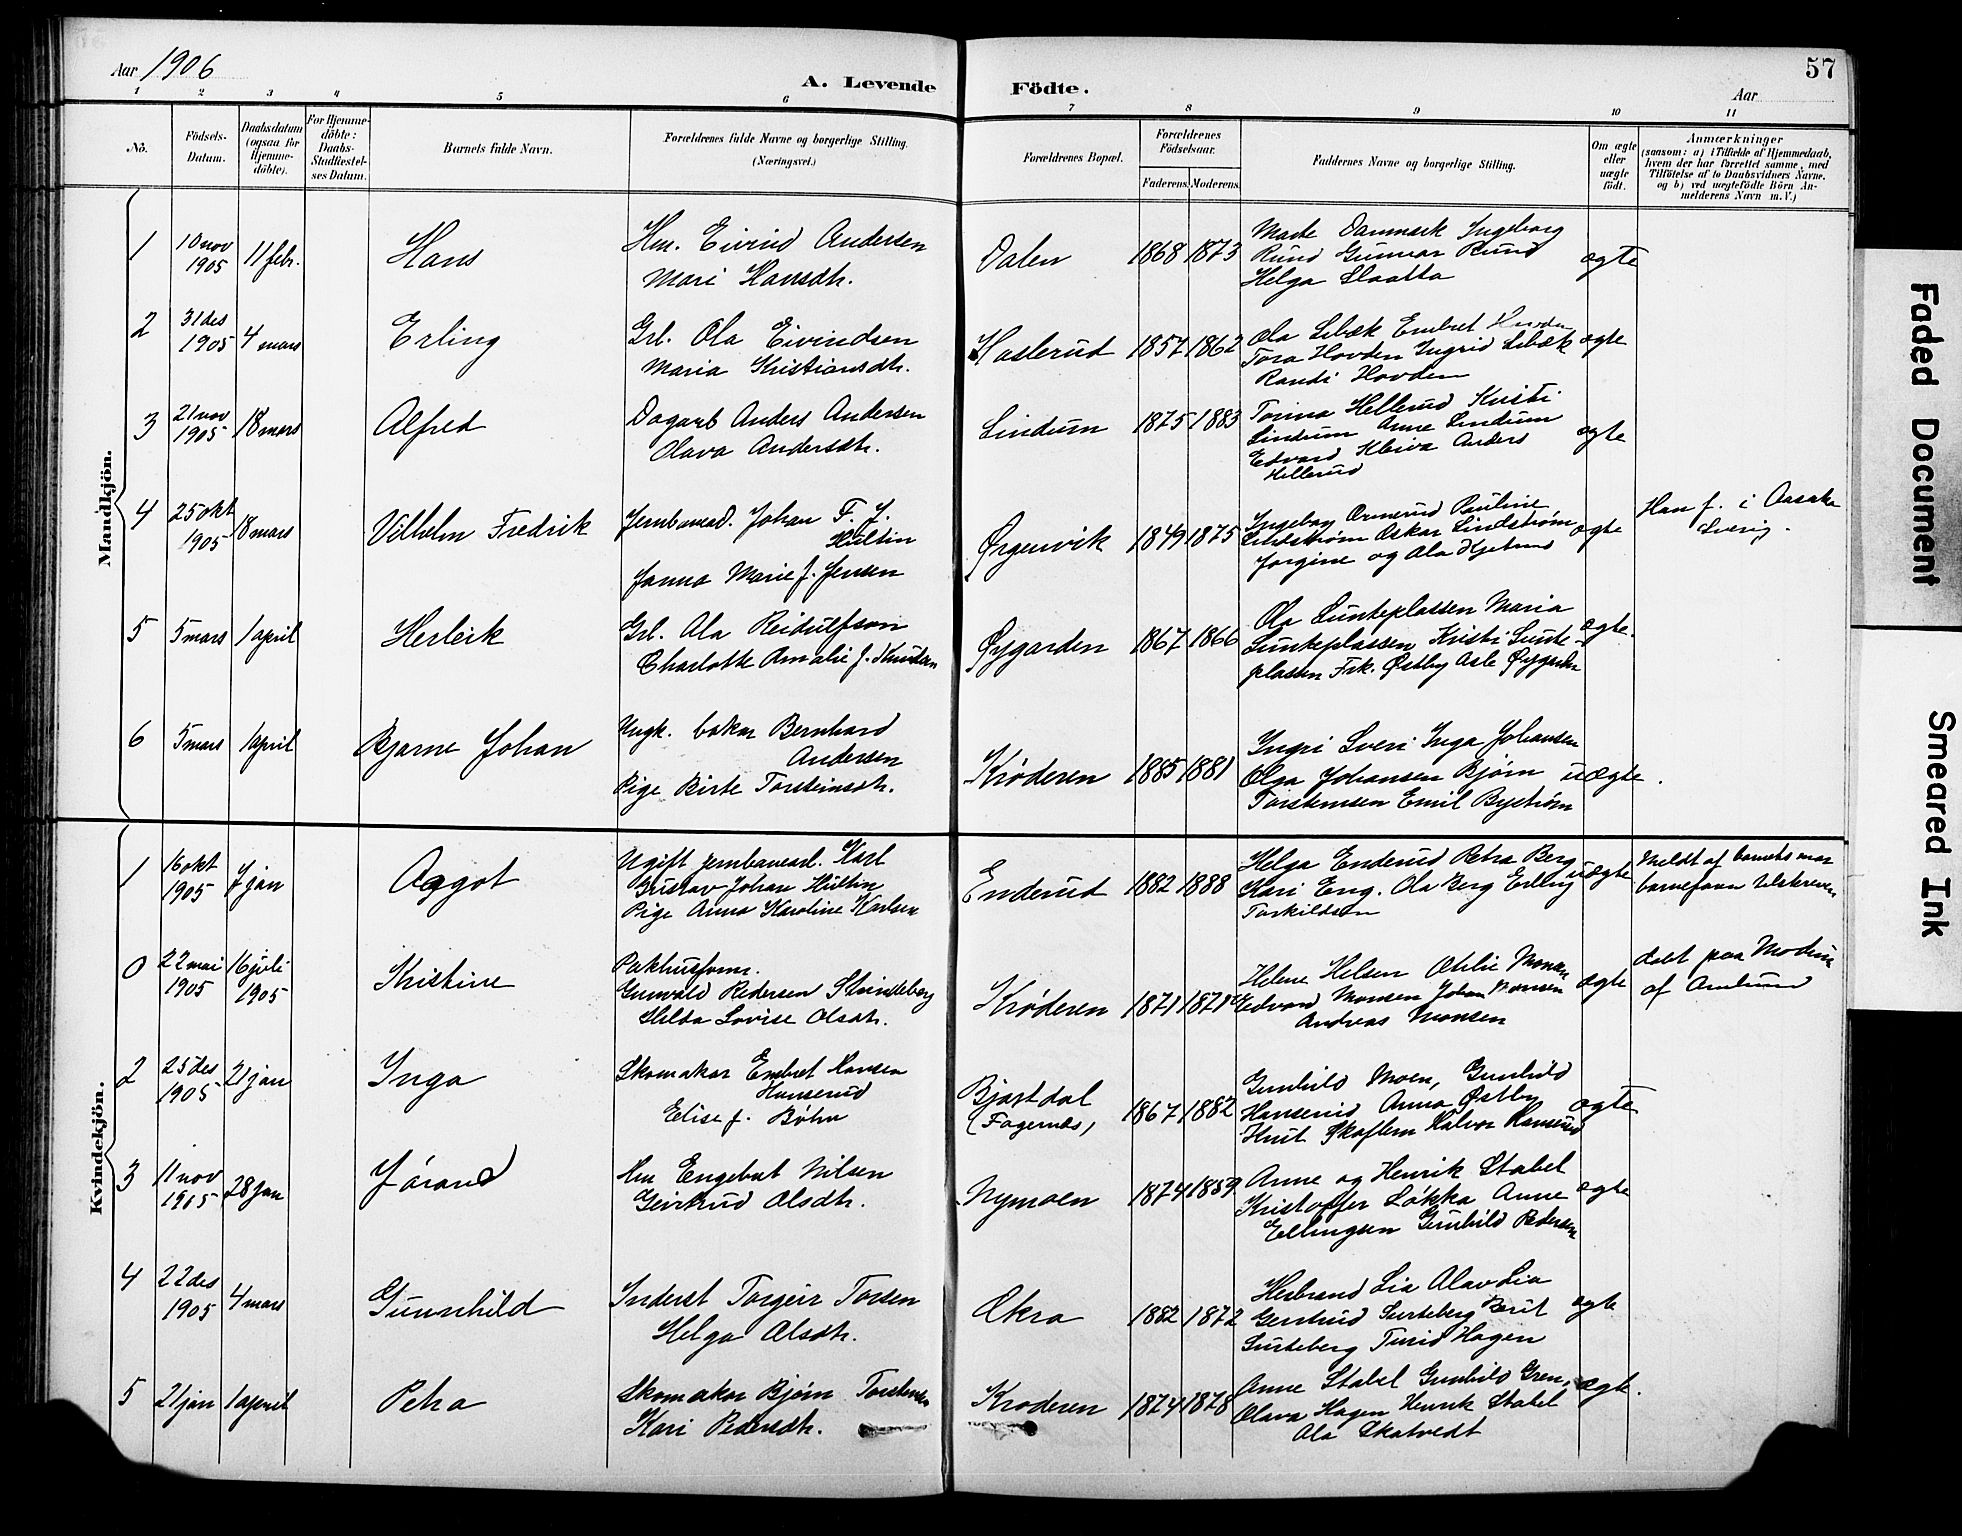 Aar 1906
A. Levende Födte.
Aar
57
1 2 3 4 5 6 7 8 9 10 11
No.
Födsels-
Datum.
Daabsdatum
(ogsaa for
Hjemme-
döbte).
For Hjemme-
döbte:
Daabs-
Stadfæstel-
ses Datum.
Barnets fulde Navn.
Forældrenes fulde Navne og borgerlige Stilling.
(Næringsvei.)
Forældrenes Bopæl.
Forældrenes
Födselsaar.
Faderens. Moderens.
Faddernes Navne og borgerlige Stilling.
Om ægte
eller
uægte
födt.
Anmærkninger
(saasom: a) i Tilfælde af Hjemmedaab,
hvem der har forrettet samme, med
Tilföielse af to Daabsvidners Navne,
og b) ved uægtefödte Börn An-
melderens Navn m. V.)
Mandkjön.
1
10 nov
1905
11 febr.
Hans
Hm. Eivind Andersen
Mari Hansdtr.
Dalen
1868 1873
Marte Danmark Ingeborg
Rund Gunnar Rund
Helga Slaatta
ægte
2
31 des
1905
4 mars
Erling
Grb. Ola Eivindsen
Maria Kristiansdtr.
Haslerud
1857 1862
Ola Libæk Embret Hovden
Tora Hovden Ingrid Libæk
Randi Hovden
ægte
3
21 nov
1905
18 mars
Alfred
Dagarb Anders Andersen
Olava Andersdtr.
Lindum
1875 1883
Torina Hellerud Kristi
Lindum Anne Lindum
Edvard Kleiva Anders
Hellerud
ægte
4
25 okt
1905
18 mars
Vilhelm Fredrik
Jernbanead. Johan F. J.
Hultin
Janna Marie f. Jensen
Ørgenvik
1849 1875
Ingebor Ormerud Pauline
Lindstrøm Oskar Lindstrøm
Jorgine og Ola Kjetsrud
ægte
Han f. i
Sverig.
5
5 mars
1 april
Herleik
Grb. Ola Reidulfson
Charlotte Amalie f. Knudsen
Øygarden
1867 1866
Ola Sunteplassen Maria
Sunteplassen Kristi Sunte-
plassen Frk. Østby Asle Øygarden
ægte.
6
5 mars
1 april
Bjarne Johan
Ungk. bakar Bernhard
Andersen
Pige Birte Torsteinsdtr.
Krøderen
1885 1881
Ingri Sveri Inga Johansen
Olga Johansen Bjørn
Torstensen Emil Bystrøm
uægte.
Kvindekjön.
1
16 okt
1905
7 jan
Aagot
Ugift jernbanearb. Karl
Gustav Johan Hultin
Pige Anna Karoline Karlsen
Enderud
1882 1888
Helga Enderud Petra Berg
Kari Eng. Ola Berg Erling
Torkildsen
uægte
Meldt af barnets mor
barnefaren
0
22 mai
1905
16 juli
1905
Kristine
Pakhusform.
Gunvald Pedersen
Hilda Lovise Olsdtr.
Krøderen
1871 1871
Helene Helsen Othilie Monsen
Edvard Monsen Johan Monsen
Andreas Monsen
ægte
døbt paa Modum
af
2
25 des
1905
21 jan
Inga
Skomakar Embret Hansen
Hanserud
Elise f. Bøhn
Bjøstdal
(Fagernes)
1867 1882
Gunhild Moen, Gunhild
Hanserud Anna Østby
Knut Skaflem Halvor Hanserud
ægte
3
11 nov
1905
28 jan
Jørand
Hm Engebret Nilsen
Geirtrud Olsdtr.
Nymoen
1874 1859
Anne og Henrik Stabel
Kristoffer Løkka Anne
Ellingsen Gunhild Pedersen
ægte
4
22 des
1905
4 mars
Gunnhild
Inderst Torgeir Torsen
Helga Olsdtr.
Okra
1882 1872
Herbrand Lia Olav Lia
Gertrud Surteberg Berit
Surteberg Turid Hagen
ægte
5
21 jan
1 april
Petra
Skomakar Bjørn Torstensen
Kari Pedersdtr.
Krøderen
1874 1878
Anne Stabel Gunhild Gren,
Olava Hagen Henrik Stabel
Ola Skatvedt
ægte.
Faded Document
Smeared Ink